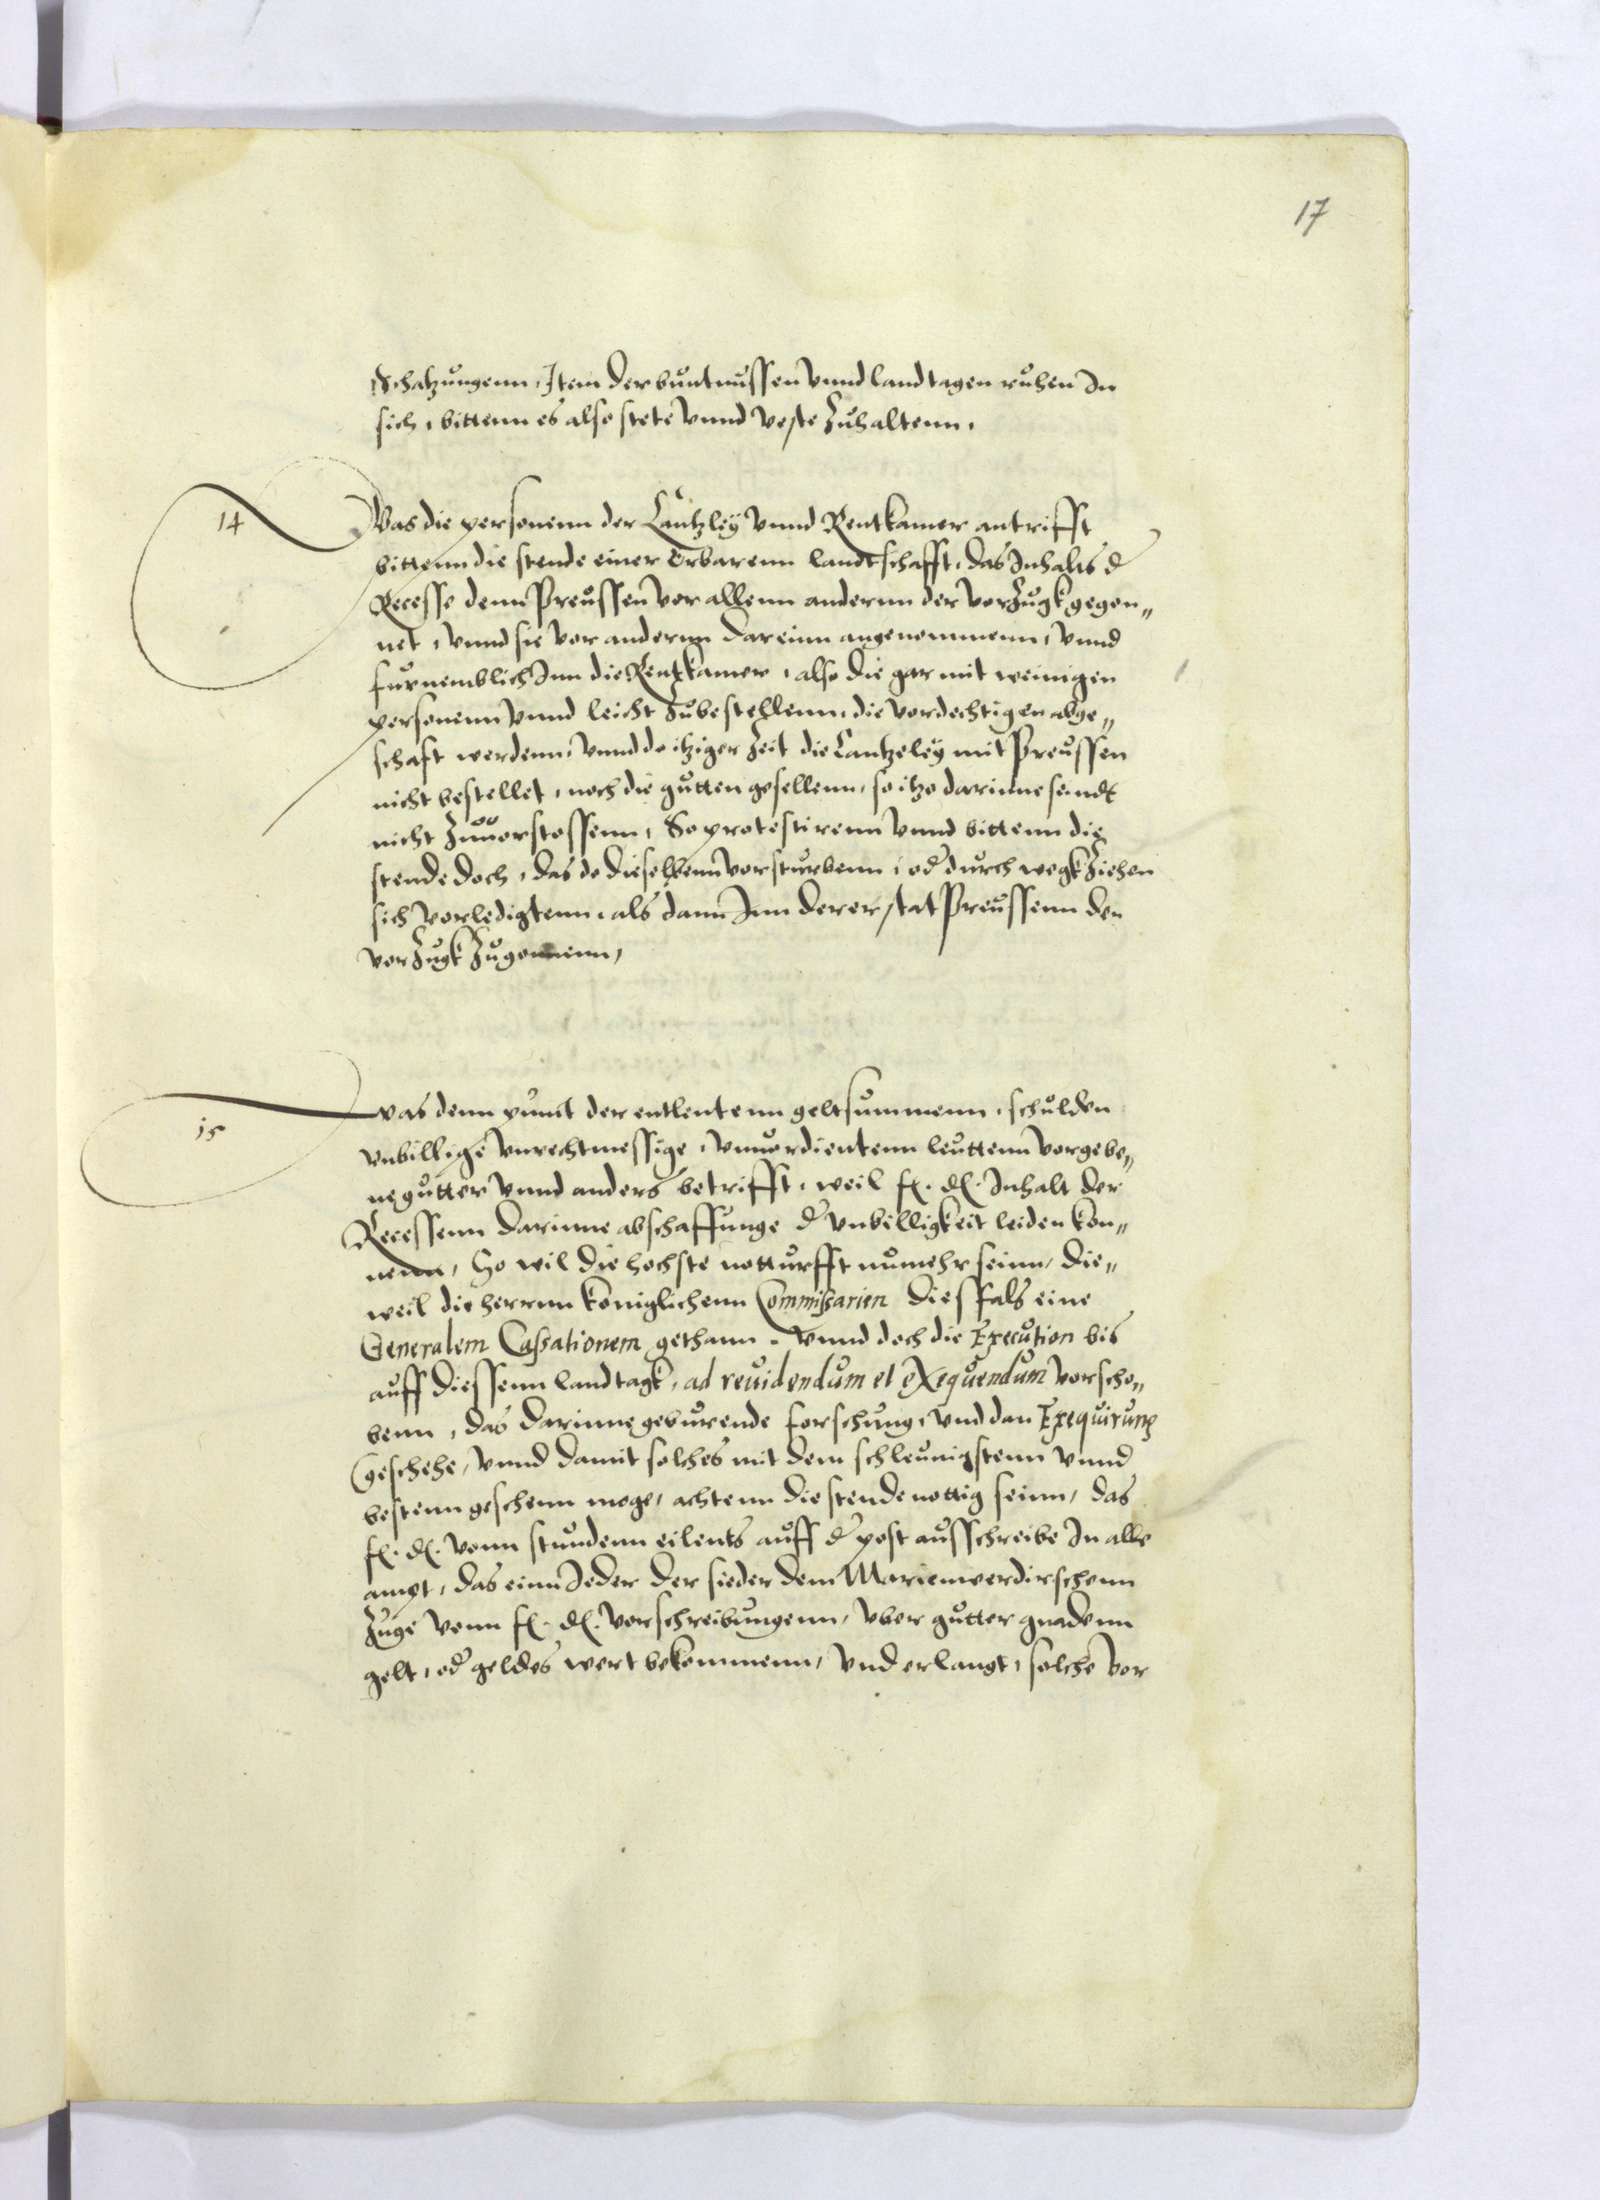 17
schatzungenn, Item der buntnussen vnnd landtagen ruhen In
sich, bittenn es also stete vnnd veste Zuhaltenn,
14
Was die personenn der Cantzley vnnd Rentkamer antrifft
bittenn die stende einer Erbarenn landtschafft, das Inhalts d
Recesse denn Preussen vor allenn anderen der vorZugk gegon„
net, vnnd sie vor anderen dareinn angenommenn, vnnd
furnemblich Inn die Rentkamer, also die gar mit weinigen
personenn vnnd leicht Zubestellenn, die vordechtigen abge„
schaft werdenn, vnnd do itziger Zeit die Cantzeley mit Preussen
nicht bestellet, noch die gutten gesellenn, so itzo darinne seindt
nicht Zuuorstossenn, So protestirenn vnnd bittenn die
stende doch, das do dieselbenn vorsturbenn, od durch wegk Ziehen
sich vorledigtenn, als dann Inn derer stat Preussenn den
vorZugk Zugonnenn,
15
was denn punct der entlentenn geltsummenn, schulden
vnbillige vnrechtmessige, vnuordientenn leuttenn vorgebe„
ne gutter vnnd anders betrifft, weil f. d. Inhalt der
Recessenn darinne abschaffunge d vnbilligkeit leiden kon„
nenn, So wil die hochste notturfft numehr seinn, die„
weil die herrnn koniglichenn Commissarien diesfals eine
Generalem Cassationem gethann, vnnd doch die Execution bis
auff diessenn landtagk, ad reuidendum et exequendum vorscho„
benn, das darinne geburende forschung, vnd dan Exequirung
geschehe, vnnd damit solches mit dem schleunigstenn vnnd
bestenn geschenn moge, achtenn die stende nottig seinn, das
f. d. vonn stundenn eilents auff d post ausschreibe In alle
ampt, das einn Jeder der sieder dem Marienwerdirschenn
Zuge vonn f. d. vorschreibungenn, vber gutter gnadenn
gelt, od geldes wert bekommenn, vnd erlangt, solche vor